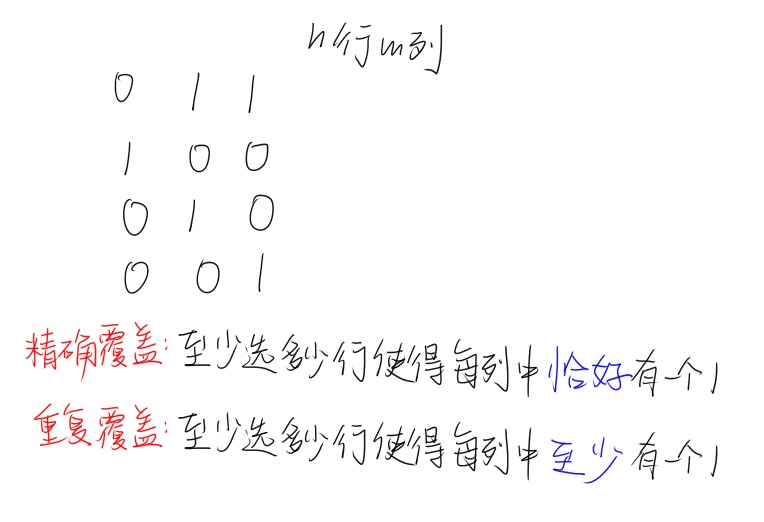 n行m列
0 1 1
1 0 0
0 1 0
0 0 1
精确覆盖:至少选多少行使得每列中恰好有一个1
重复覆盖:至少选多少行使得每列中至少有一个1